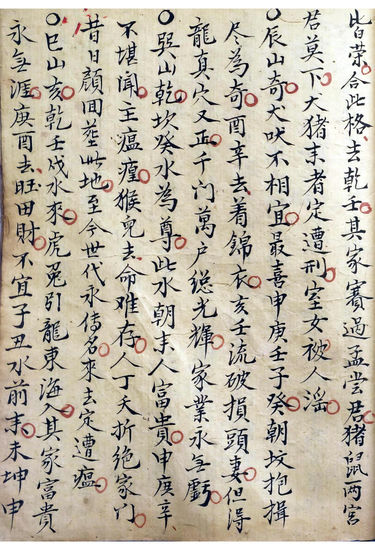 皆荣合此格去乾壬其家賽過孟尝君猪鼠两宫
若莫下犬猪耒者定遭刑室女被人淫
○辰山奇犬吠不相宜最喜申庚壬子癸朝坟抱揖
尽為奇酉辛去着錦衣亥壬流破損頭妻但得
龍真穴又正千门萬户總光輝家業永无虧
○巽山乾坎癸水為尊此水朝耒人富貴申庚辛
不堪闻主瘟㾮猴兒去命难存人丁夭折绝家门
昔日顔囬塟此地至今世代永傳名來去定遭瘟
○巳山亥乾壬戌水來虎兎引龍東海入其家富貴
永无涯庚酉去旺田財不宜子丑水前耒未坤申